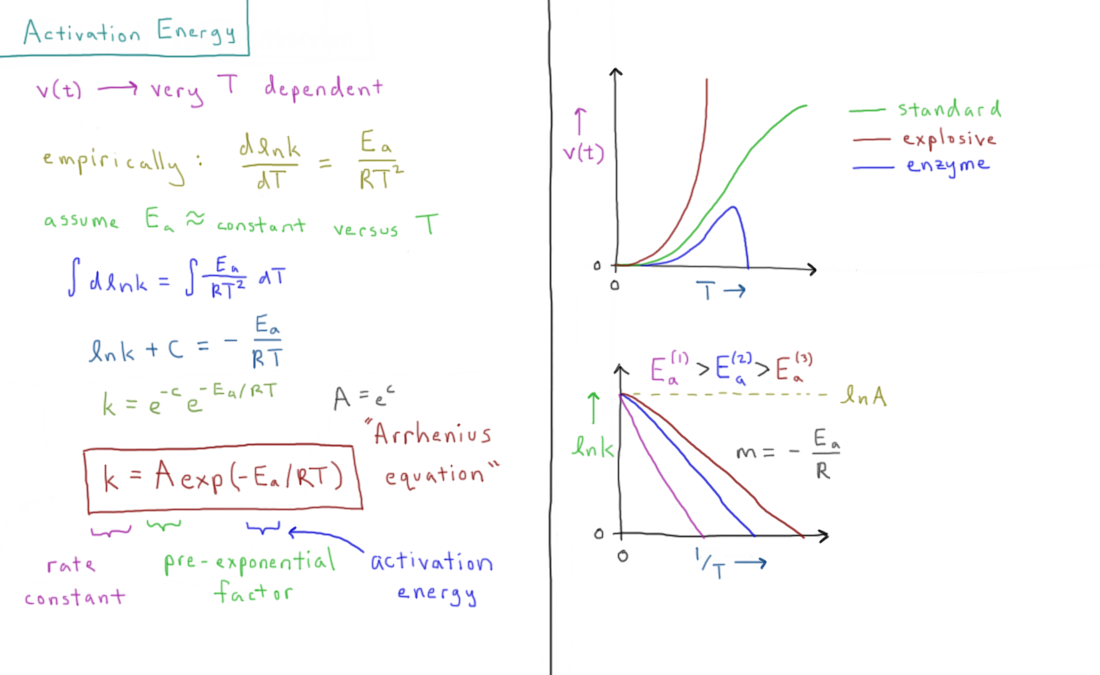 Activation Energy
v(t) → very T dependent
empirically : dlnk/dT = Ea/RT²
assume Ea ≈ constant versus T
∫ dlnk = ∫ Ea/RT² dT
lnk + C = - Ea/RT
k = e^-c e^-Ea/RT A = e^c
k = A exp(-Ea/RT) "Arrhenius equation"
rate constant
pre-exponential factor
activation energy
↑ v(t)
0
0
T →
standard
explosive
enzyme
Ea^(1) > Ea^(2) > Ea^(3)
lnA
↑ lnk
m = - Ea/R
0
0
1/T →